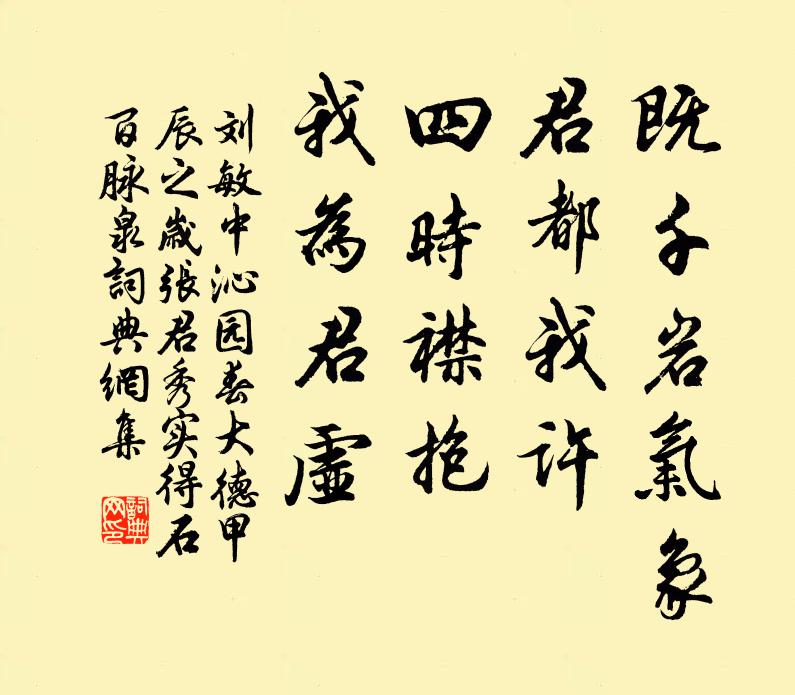 既千岩氣象
君都我許
四時襟抱
我為君虛
刘敏中沁园春大德甲
辰之歲張君秀实得石
百脉泉詞典網集
詞典
网印